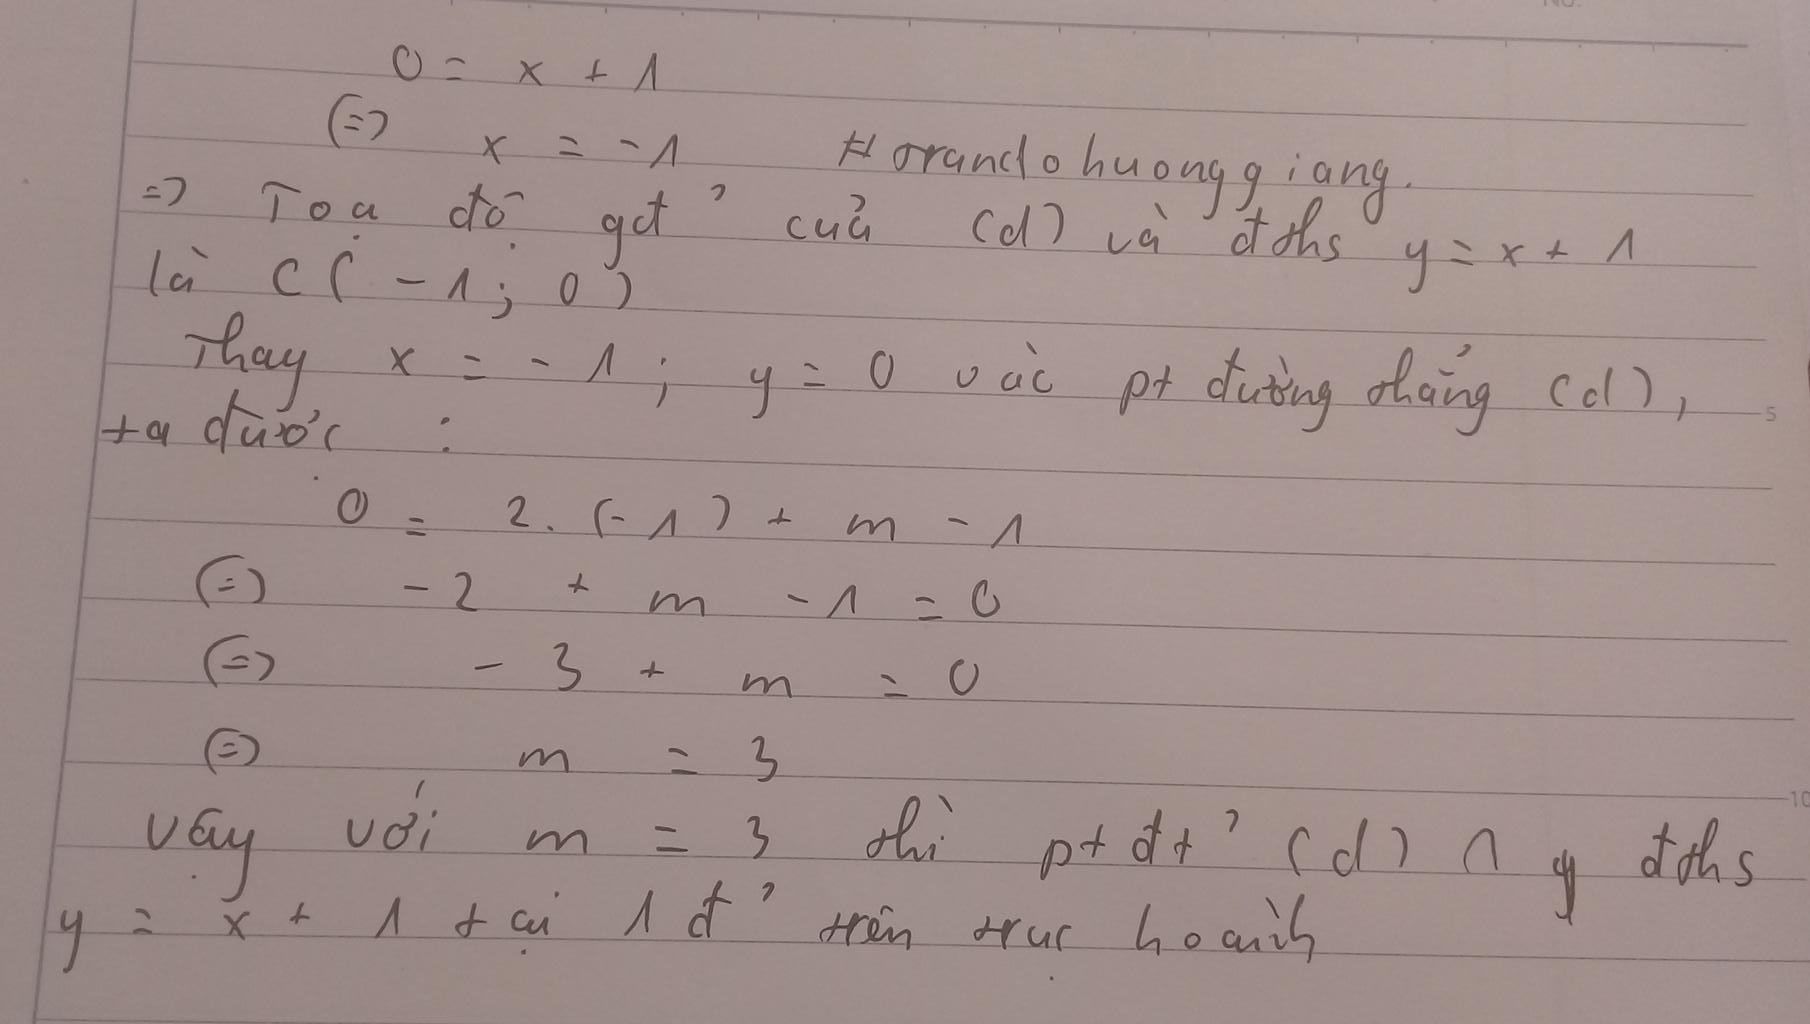 0 = x + 1
(=) x = -1 Horandohuonggiang.
=) Toạ độ gđ' của (d) và đths y = x + 1
là C( -1; 0)
Thay x = - 1; y = 0 vào pt đường thẳng (d),
ta được :
0 = 2. (-1) + m - 1
(=) - 2 + m - 1 = 0
(=) - 3 + m = 0
(=) m = 3
Vậy với m = 3 thì pt đt' (d) ∩ y đths
y = x + 1 tại 1 đ' trên trục hoành
5
10